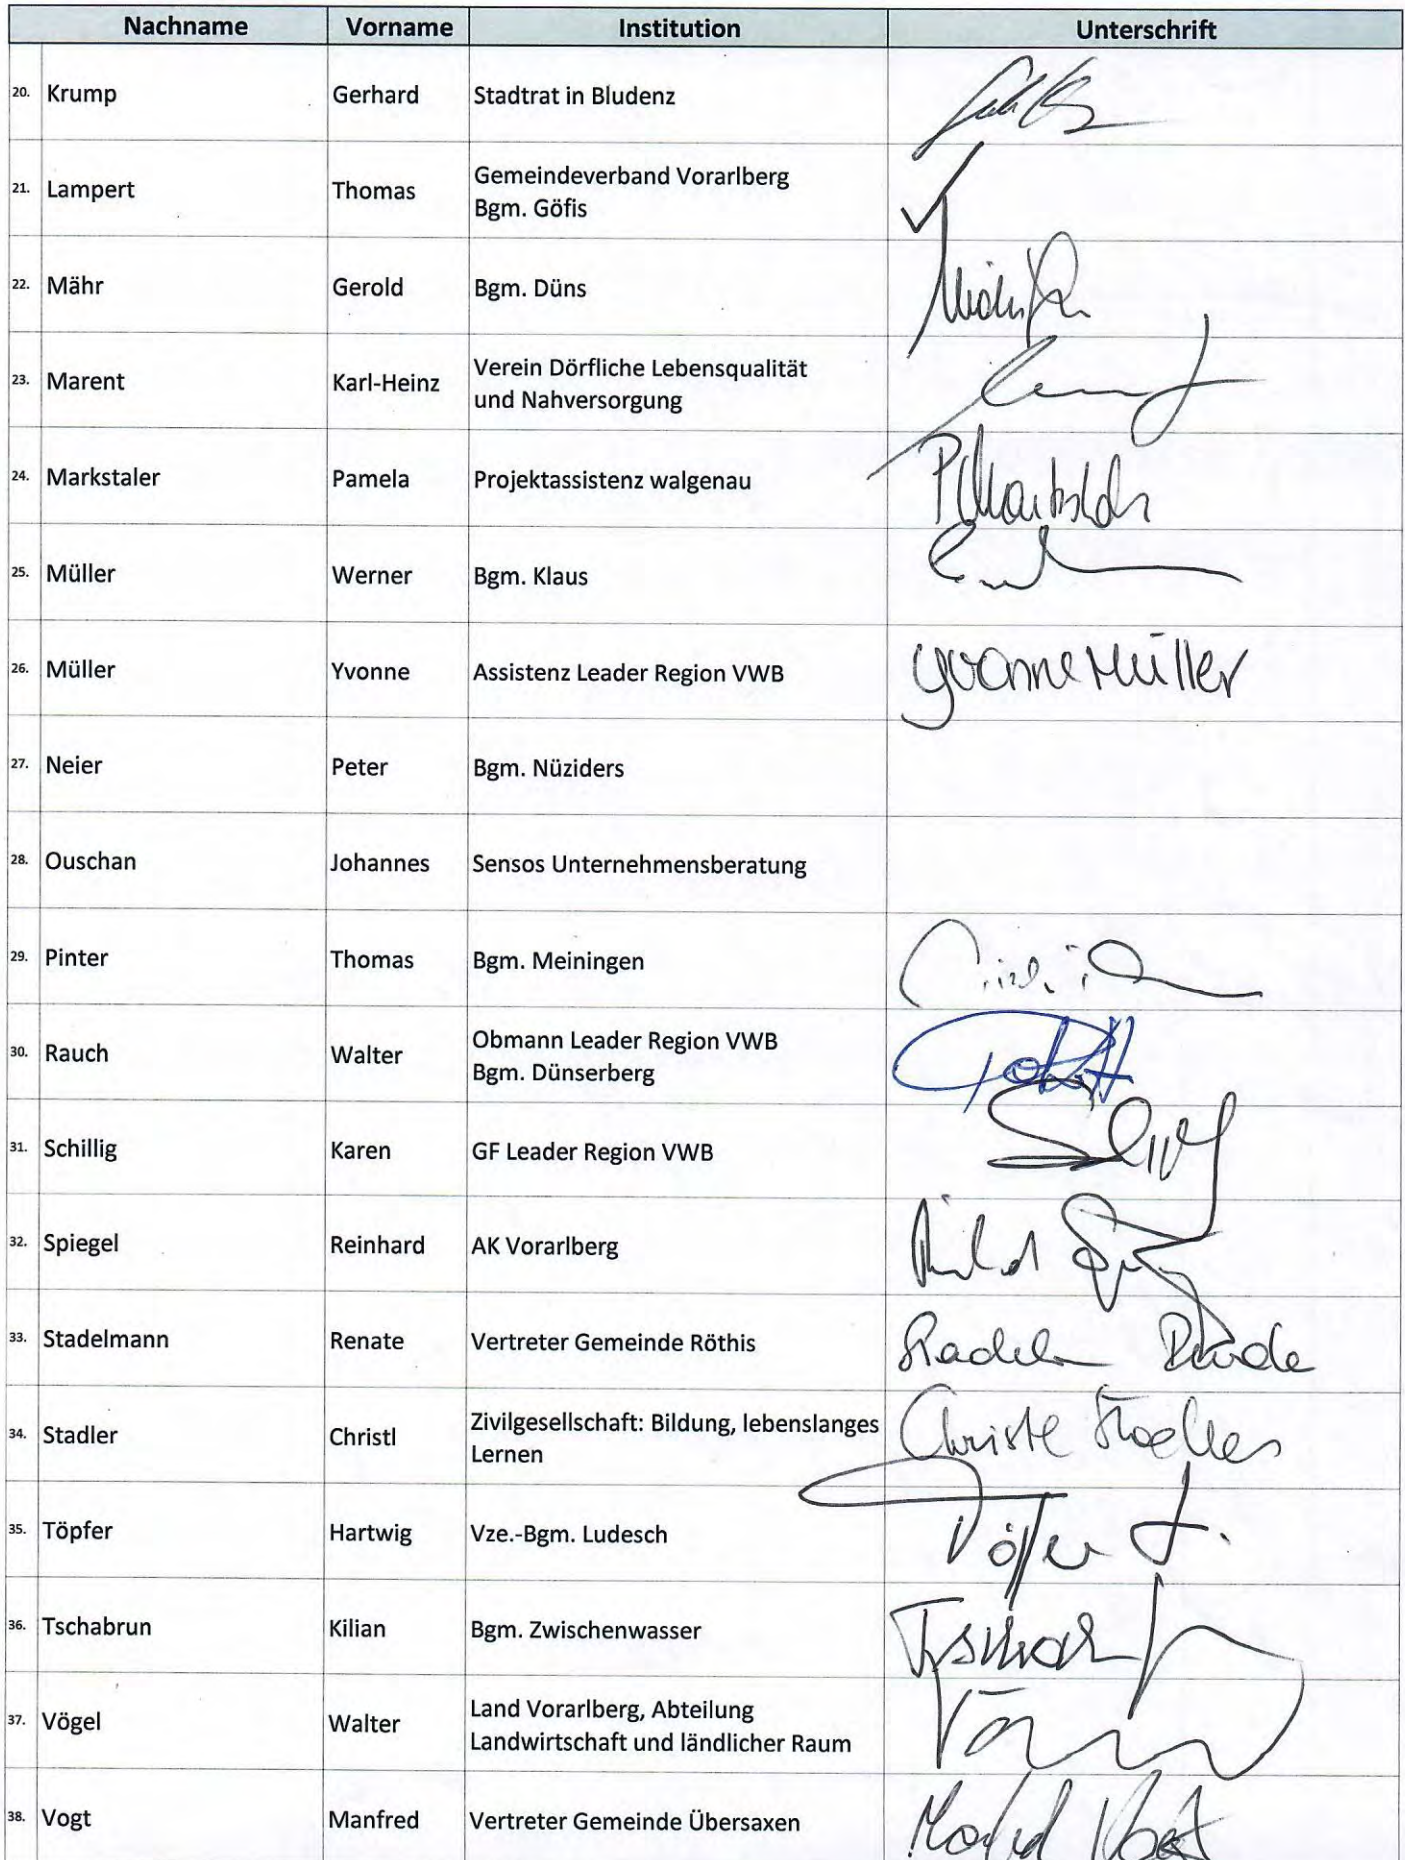 Nachname Vorname Institution Unterschrift
20. Krump Gerhard Stadtrat in Bludenz
21. Lampert Thomas Gemeindeverband Vorarlberg
Bgm. Göfis
✓
22. Mähr Gerold Bgm. Düns
23. Marent Karl-Heinz Verein Dörfliche Lebensqualität
und Nahversorgung
24. Markstaler Pamela Projektassistenz walgenau
25. Müller Werner Bgm. Klaus
26. Müller Yvonne Assistenz Leader Region VWB Yvonne Müller
27. Neier Peter Bgm. Nüziders
28. Ouschan Johannes Sensos Unternehmensberatung
29. Pinter Thomas Bgm. Meiningen
30. Rauch Walter Obmann Leader Region VWB
Bgm. Dünserberg
31. Schillig Karen GF Leader Region VWB
32. Spiegel Reinhard AK Vorarlberg
33. Stadelmann Renate Vertreter Gemeinde Röthis
34. Stadler Christl Zivilgesellschaft: Bildung, lebenslanges
Lernen
35. Töpfer Hartwig Vze.-Bgm. Ludesch
36. Tschabrun Kilian Bgm. Zwischenwasser
37. Vögel Walter Land Vorarlberg, Abteilung
Landwirtschaft und ländlicher Raum
38. Vogt Manfred Vertreter Gemeinde Übersaxen